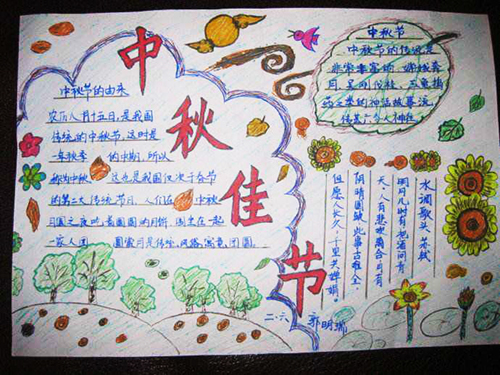 中秋佳节
中秋节的由来
农历八月十五日,是我国
传统的中秋节。这时是
一年秋季 的中期,所以
称为中秋 这也是我国仅次于春节
的第二大传统节日。人们在 中秋
月圆之夜,吃着圆圆的月饼,围坐在一起
一家人团 圆赏月是传统,风俗,寓意团圆。
中秋节
中秋节的传说是
非常丰富的,嫦娥奔
月,吴刚伐桂,玉兔捣
药之类的神话故事流
传甚广令人神往
水调歌头 苏轼
明月几时有把酒问青
天,人有悲欢离合月有
阴晴圆缺,此事古难全,
但愿人长久,千里共婵娟。
二.六 郭明